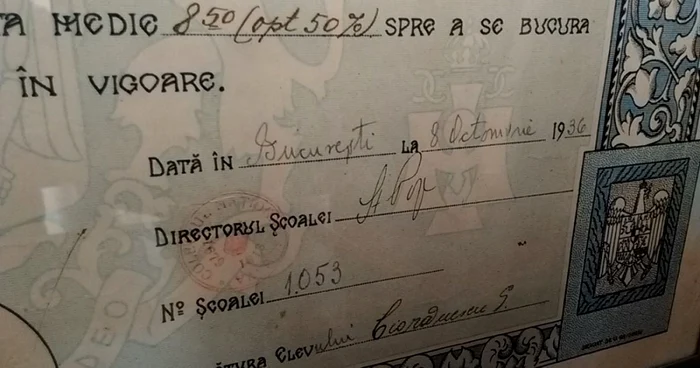 A MEDIE 8 50 (opt 50%) SPRE A SE BUCURA
ÎN VIGOARE.
DATĂ ÎN Bucureşti LA 8 Octombrie 1936
DIRECTORUL ŞCOALEI A Pop
Nº ŞCOALEI 1.053
TURA ELEVului
DEO